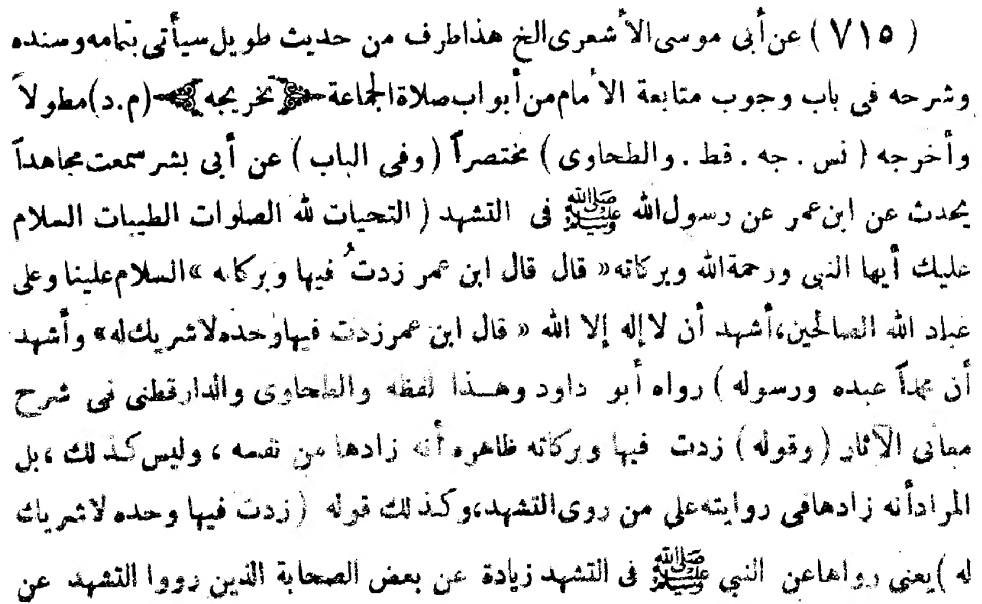 ( ٧١٥ ) عن أبى موسى الأشعرى الخ هذا طرف من حديث طويل سيأتى بتمامه وسنده
وشرحه فى باب وجوب متابعة الأمام من أبواب صلاة الجماعة ﴿ تخريجه ﴾ (م.د) مطولاً
وأخرجه ( نس . جه . قط . والطحاوى ) مختصراً ( وفى الباب ) عن أبى بشر سمعت مجاهداً
يحدث عن ابن عمر عن رسول الله ﷺ فى التشهد ( التحيات لله الصلوات الطيبات السلام
عليك أيها النبى ورحمة الله وبركاته « قال قال ابن عمر زدتُ فيها وبركاته » السلام علينا وعلى
عباد الله الصالحين، أشهد أن لا إله إلا الله « قال ابن عمر زدت فيها وحده لا شريك له » وأشهد
أن محمداً عبده ورسوله ) رواه أبو داود وهــذا لفظه والطحاوى والدارقطنى فى شرح
معانى الآثار ( وقوله ) زدت فيها وبركاته ظاهره أنه زادها من نفسه ، وليس كـذلك ، بل
المراد أنه زادها فى روايته على من روى التشهد، وكـذلك قوله ( زدت فيها وحده لا شريك
له ) يعنى رواها عن النبى ﷺ فى التشهد زيادة عن بعض الصحابة الذين رووا التشهد عن